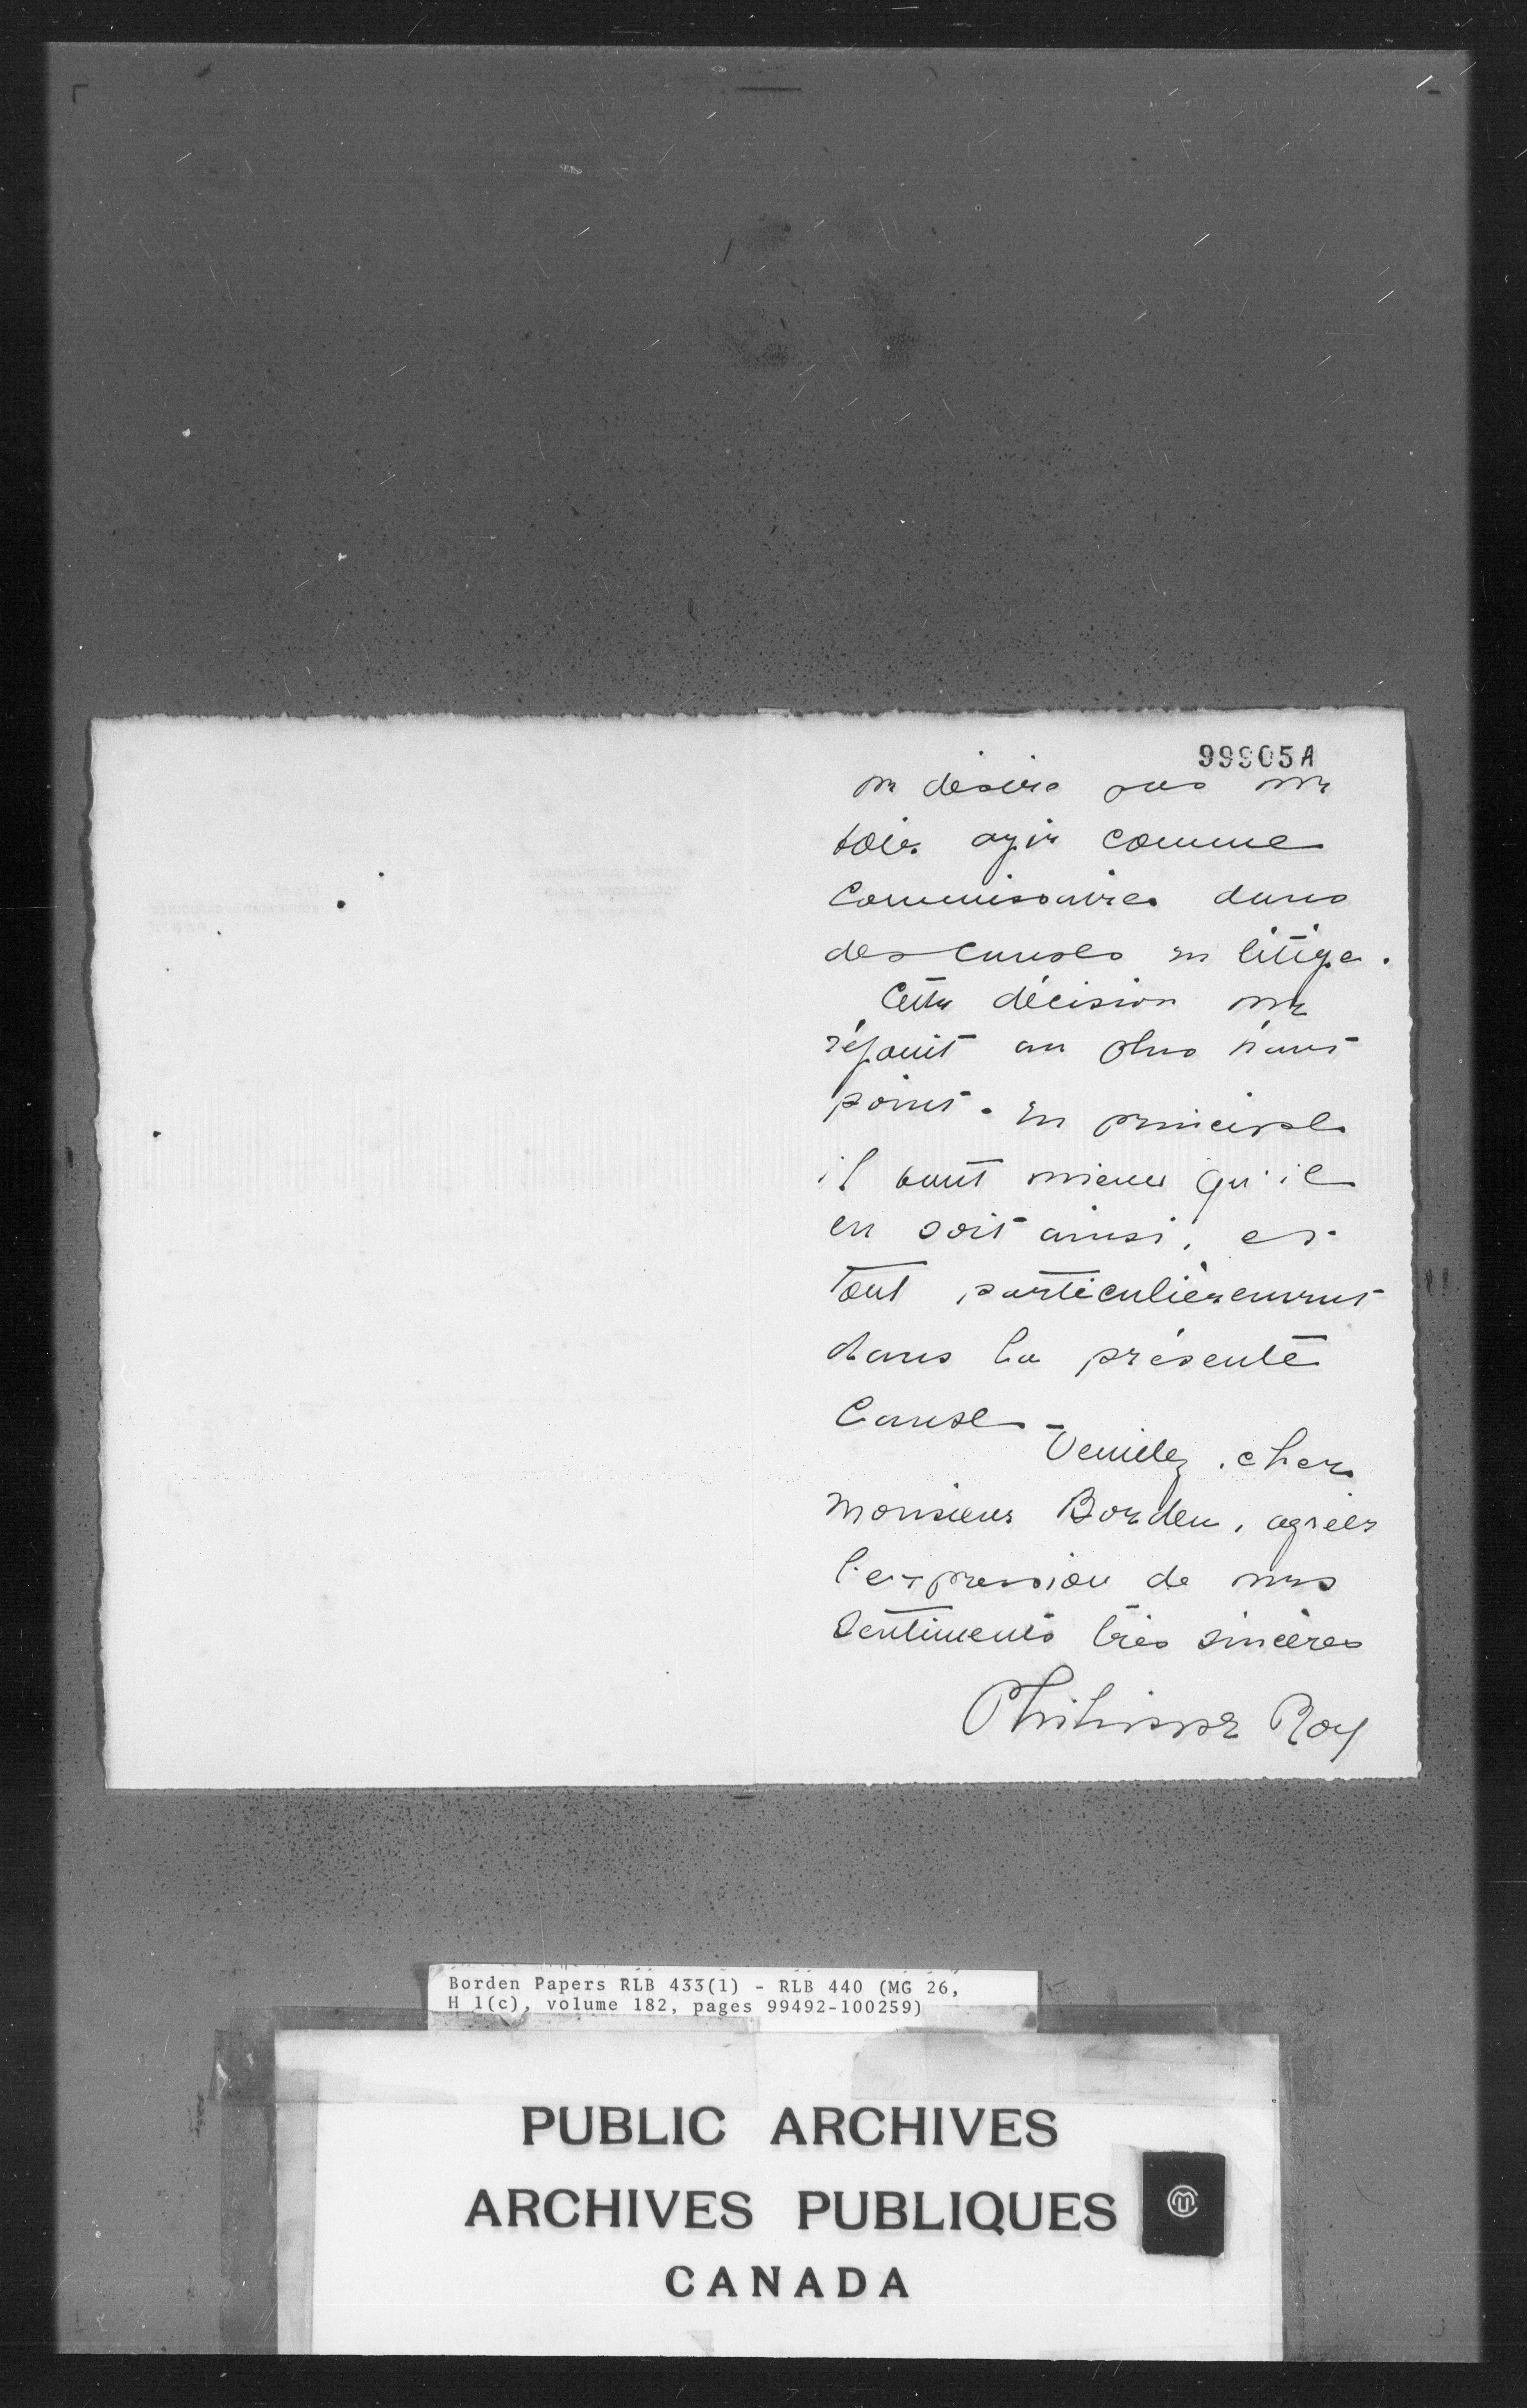 99905A
ne désire pas me
voir agir comme
Commissaire dans
des causes en litige.
Cette décision me
réjouit au plus haut
point. En principe
il vaut mieux qu'il
en soit ainsi, et
tout particulièrement
dans la présente
cause.
Veuillez, cher
monsieur Borden, agréer
l'expression de mes
sentiments très sincères
Philippe Roy
Borden Papers RLB 433(1) - RLB 440 (MG 26,
H 1(c), volume 182, pages 99492-100259)
PUBLIC ARCHIVES
ARCHIVES PUBLIQUES
CANADA